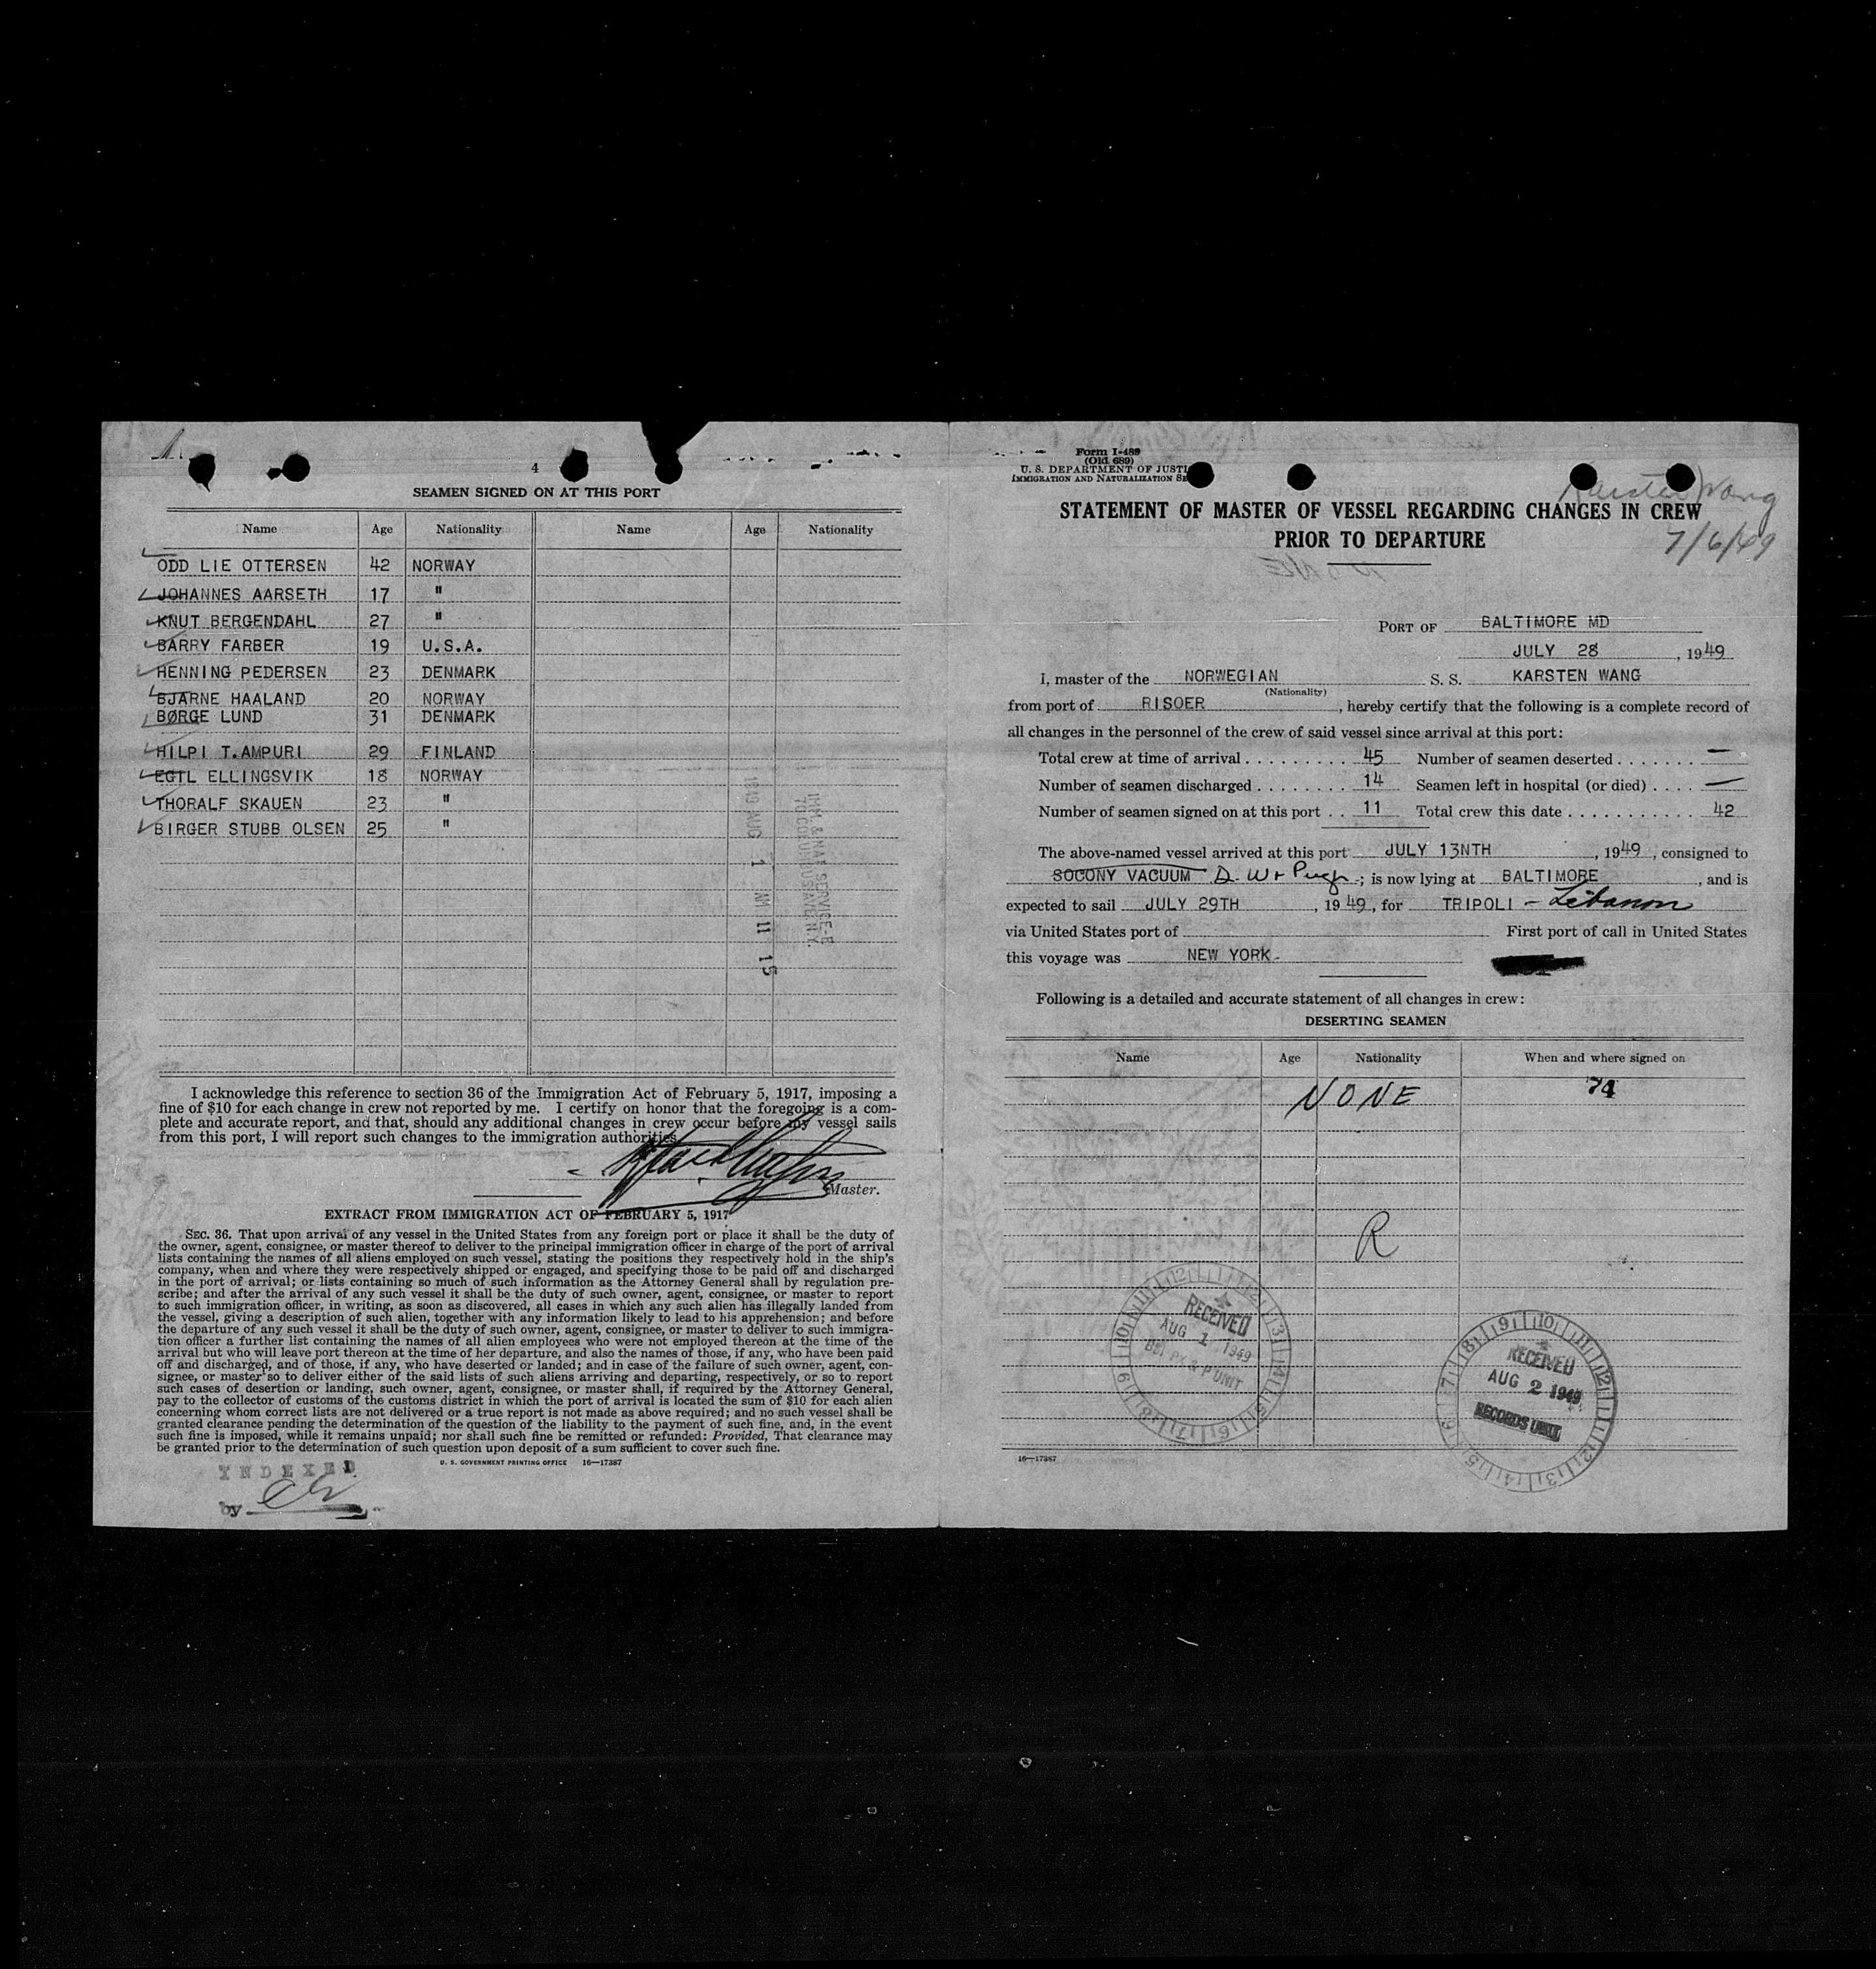 4
SEAMEN SIGNED ON AT THIS PORT
Name Age Nationality Name Age Nationality
ODD LIE OTTERSEN 42 NORWAY
JOHANNES AARSETH 17 "
KNUT BERGENDAHL 27 "
BARRY FARBER 19 U.S.A.
HENNING PEDERSEN 23 DENMARK
BJARNE HAALAND 20 NORWAY
BØRGE LUND 31 DENMARK
HILPI T.AMPURI 29 FINLAND
EGIL ELLINGSVIK 18 NORWAY
THORALF SKAUEN 23 "
BIRGER STUBB OLSEN 25 "
1949 AUG 1 AM 11 15
IMM. & NAT. SERVICE-
70 COLUMBUS AVE N.Y.
I acknowledge this reference to section 36 of the Immigration Act of February 5, 1917, imposing a
fine of $10 for each change in crew not reported by me. I certify on honor that the foregoing is a com-
plete and accurate report, and that, should any additional changes in crew occur before my vessel sails
from this port, I will report such changes to the immigration authorities.
Master.
EXTRACT FROM IMMIGRATION ACT OF FEBRUARY 5, 1917
SEC. 36. That upon arrival of any vessel in the United States from any foreign port or place it shall be the duty of
the owner, agent, consignee, or master thereof to deliver to the principal immigration officer in charge of the port of arrival
lists containing the names of all aliens employed on such vessel, stating the positions they respectively hold in the ship's
company, when and where they were respectively shipped or engaged, and specifying those to be paid off and discharged
in the port of arrival; or lists containing so much of such information as the Attorney General shall by regulation pre-
scribe; and after the arrival of any such vessel it shall be the duty of such owner, agent, consignee, or master to report
to such immigration officer, in writing, as soon as discovered, all cases in which any such alien has illegally landed from
the vessel, giving a description of such alien, together with any information likely to lead to his apprehension; and before
the departure of any such vessel it shall be the duty of such owner, agent, consignee, or master to deliver to such immigra-
tion officer a further list containing the names of all alien employees who were not employed thereon at the time of the
arrival but who will leave port thereon at the time of her departure, and also the names of those, if any, who have been paid
off and discharged, and of those, if any, who have deserted or landed; and in case of the failure of such owner, agent, con-
signee, or master so to deliver either of the said lists of such aliens arriving and departing, respectively, or so to report
such cases of desertion or landing, such owner, agent, consignee, or master shall, if required by the Attorney General,
pay to the collector of customs of the customs district in which the port of arrival is located the sum of $10 for each alien
concerning whom correct lists are not delivered or a true report is not made as above required; and no such vessel shall be
granted clearance pending the determination of the question of the liability to the payment of such fine, and, in the event
such fine is imposed, while it remains unpaid; nor shall such fine be remitted or refunded: Provided, That clearance may
be granted prior to the determination of such question upon deposit of a sum sufficient to cover such fine.
U. S. GOVERNMENT PRINTING OFFICE 16—17387
INDEXED
by
Form I-489
(Old 689)
U. S. DEPARTMENT OF JUSTI
IMMIGRATION AND NATURALIZATION SE
Karsten Wang
7/6/49
STATEMENT OF MASTER OF VESSEL REGARDING CHANGES IN CREW
PRIOR TO DEPARTURE
PORT OF BALTIMORE MD
JULY 28, 1949
I, master of the NORWEGIAN S. S. KARSTEN WANG
(Nationality)
from port of RISOER, hereby certify that the following is a complete record of
all changes in the personnel of the crew of said vessel since arrival at this port:
Total crew at time of arrival . . . . . . . . . 45 Number of seamen deserted . . . . . . . —
Number of seamen discharged . . . . . . . . 14 Seamen left in hospital (or died) . . . . —
Number of seamen signed on at this port . . 11 Total crew this date . . . . . . . . . . . 42
The above-named vessel arrived at this port JULY 13NTH, 1949, consigned to
SOCONY VACUUM D. W + Pugh; is now lying at BALTIMORE, and is
expected to sail JULY 29TH, 1949, for TRIPOLI - Lebanon
via United States port of First port of call in United States
this voyage was NEW YORK.
Following is a detailed and accurate statement of all changes in crew:
DESERTING SEAMEN
Name Age Nationality When and where signed on
NONE 74
R
RECEIVED
AUG 1 1949
BSI PX & P UNIT
RECEIVED
AUG 2 1949
RECORDS UNIT
16—17387